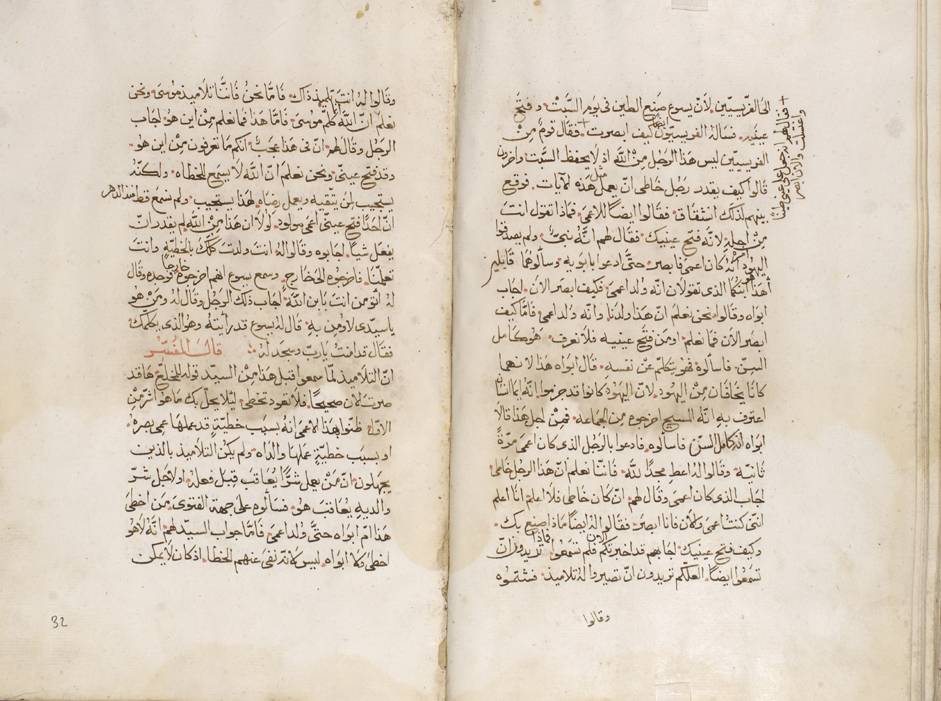 الى الفريسيين لان يسوع صنع الطين في يوم السبت وفتح
عينيه فساله الفريسيون ايضا كيف ابصرت فقال قوم من
فقال لهم انه جعل على عيني طينا
واغتسلت والان ابصر
الفريسيين ليس هذا الرجل من الله اذ لا يحفظ السبت واخرون
قالوا كيف يقدر رجل خاطى ان يعمل مثل هذه الايات فوقع
بينهم لذلك انشقاق فقالوا ايضا للاعمى فماذا تقول انت
من اجله لانه فتح عينيك فقال لهم انه نبي ولم يصدقوا
اليهود انه كان اعمى فابصر حتى ادعوا بابويه وسالوهما قايلين
أهذا هو ابنكما الذى تقولان انه ولد اعمى فكيف ابصر الان اجاب
ابواه وقالوا نحن نعلم ان هذا ولدنا وانه ولد اعمى فاما كيف
ابصر الان فما نعلم او من فتح عينيه فلا نعرف هو كامل
السن فاسالوه فهو يتكلم عن نفسه قال ابواه هذا لانهما
كانا يخافان من اليهود لان اليهود كانوا قد جزموا انه ايما انسان
اعترف به انه المسيح اخرجوه من الجماعه فمن اجل هذا قالا
ابواه انه كامل السن فاسالوه فادعوا بالرجل الذى كان اعمى مرة
ثانية وقالوا له اعط مجدا لله فاننا نعلم ان هذا الرجل خاطى
اجاب الذى كان اعمى وقال لهم ان كان خاطى فلا اعلم انا اعلم
انني كنت اعمى والان فانا ابصر فقالوا له ايضا ماذا صنع بك
وكيف فتح عينيك اجابهم قد اخبرتكم الان فلم تسمعوا فماذا تريدون ان
تسمعوا ايضا العلكم تريدون ان تصيروا له تلاميذ فشتموه
وقالوا
وقالوا له انت تلميذ ذاك فاما نحن فاننا تلاميذ موسى ونحن
نعلم ان الله كلم موسى فاما هذا فما نعلم من اين هو اجاب
الرجل وقال لهم ان في هذا عجب انكم ما تعرفون من اين هو
وقد فتح عينى ونحن نعلم ان الله لا يسمع للخطاه ولكنه
يستجيب لمن يتقيه ويعمل رضاه لهذا يستجيب ولم نسمع قط منذ الدهر
ان احدا فتح عينى اعمى مولود ولولا ان هذا من الله لم يقدر ان
يفعل شيا اجابوه وقالوا له انت ولدت كلك بالخطية وانت
تعلمنا فاخرجوه الى خارج وسمع يسوع انهم اخرجوه خارجا فوجده وقال
له اتومن انت بابن الله اجاب ذلك الرجل وقال له ومن هو
يا سيدى لاومن به قال له يسوع قد رايته وهو الذى يكلمك
فقال قد امنت يا رب وسجد له قال المفسر
ان التلاميذ لما سمعوا قبل هذا من السيد قوله للمخلع ها قد
صرت الان صحيحا فلا تعود تخطى ليلا يحل بك ما هو اشر من
الاول ظنوا هذا الاعمى انه بسبب خطية قد عملها عمى بصره
او بسبب خطية عملها والداه ولم يكن التلاميذ بالذين
يجهلون ان من يعمل شرا يعاقب قبل وفعله او لاجل شر
والديه يعاقب هو فسالوه على جهة الفتوى من اخطى
هذا ام ابواه حتى ولد اعمى فاما جواب السيد لهم انه لا هو
اخطى ولا ابواه ليس كانه نفى عنهم الخطا اذ كان لا يمكن
32